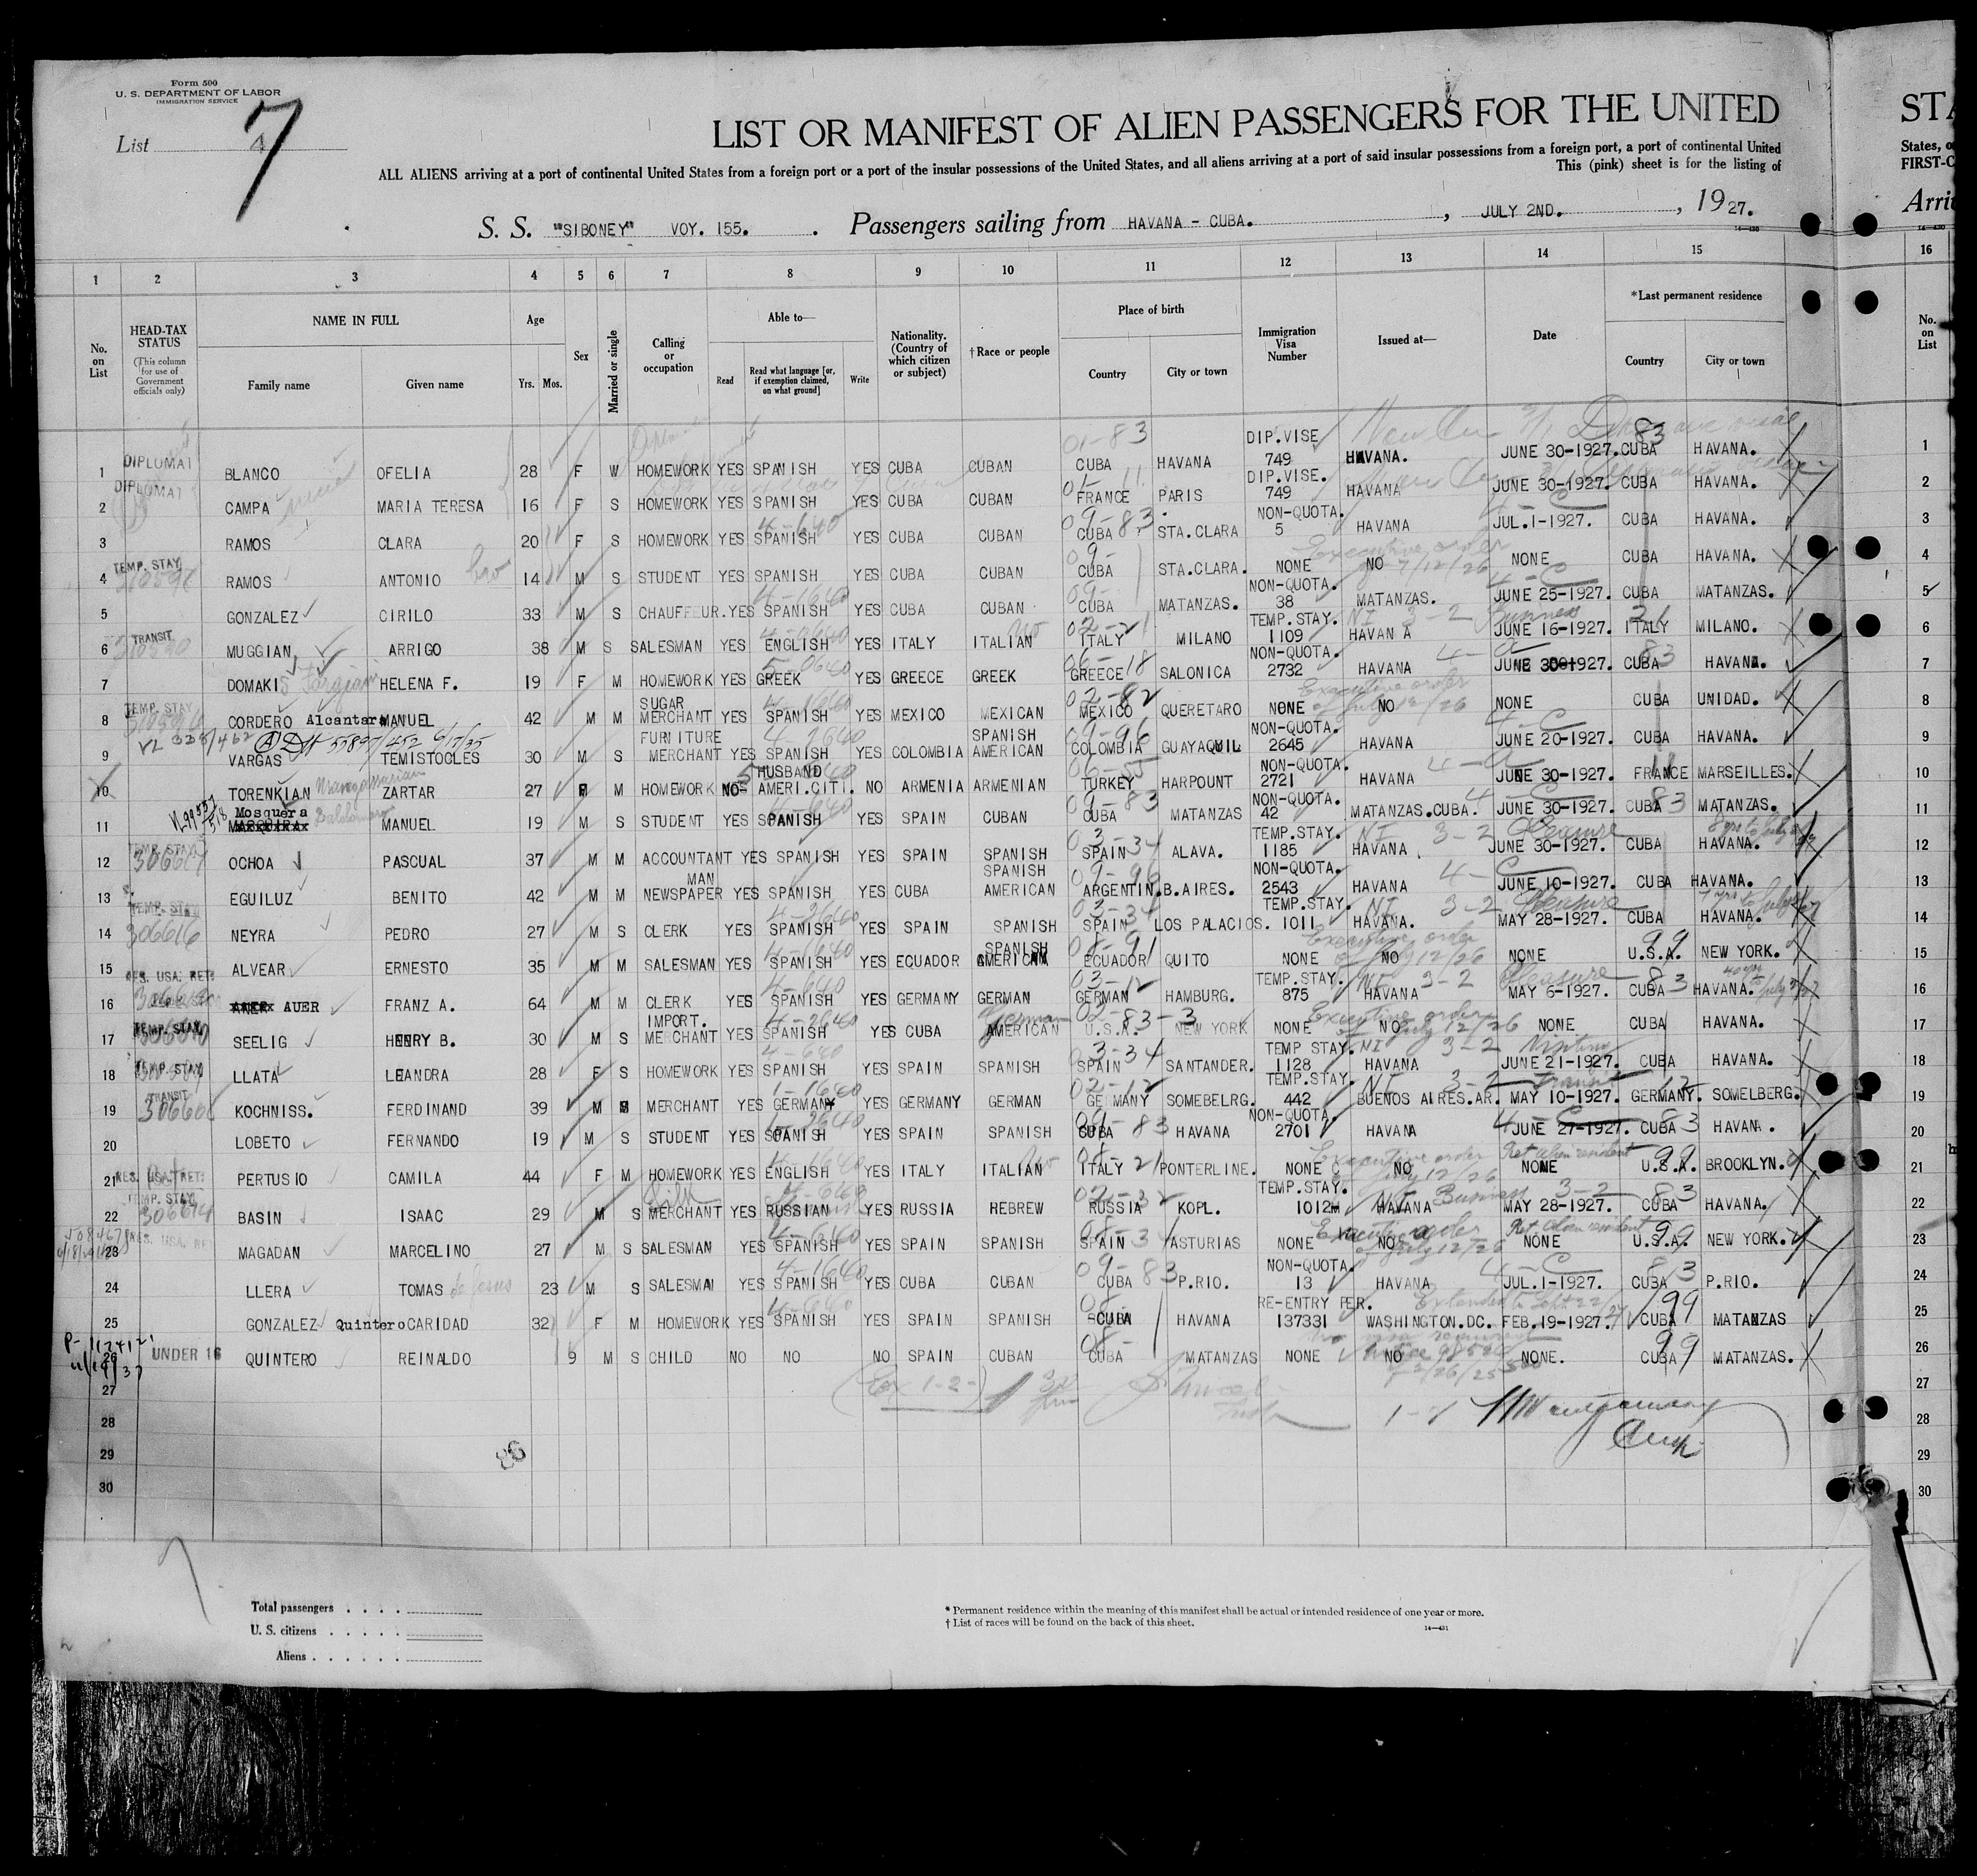 Form 500
U. S. DEPARTMENT OF LABOR
IMMIGRATION SERVICE
List 4 7
LIST OR MANIFEST OF ALIEN PASSENGERS FOR THE UNITED
ALL ALIENS arriving at a port of continental United States from a foreign port or a port of the insular possessions of the United States, and all aliens arriving at a port of said insular possessions from a foreign port, a port of continental United
This (pink) sheet is for the listing of
S. S. "SIBONEY" VOY. 155. Passengers sailing from HAVANA - CUBA. , JULY 2ND. , 1927.
STA
States, o
FIRST-C
Arri
1 2 3 4 5 6 7 8 9 10 11 12 13 14 15 16
No. on List
HEAD-TAX STATUS
(This column for use of Government officials only)
NAME IN FULL
Family name Given name
Age
Yrs. Mos.
Sex
Married or single
Calling or occupation
Able to—
Read
Read what language [or, if exemption claimed, on what ground]
Write
Nationality. (Country of which citizen or subject)
† Race or people
Place of birth
Country City or town
Immigration Visa Number
Issued at—
Date
*Last permanent residence
Country City or town
No. on List
1 DIPLOMAT BLANCO OFELIA 28 F W HOMEWORK YES SPANISH YES CUBA CUBAN CUBA HAVANA DIP.VISE 749 HAVANA. JUNE 30-1927. CUBA HAVANA. 1
2 DIPLOMAT CAMPA MARIA TERESA 16 F S HOMEWORK YES SPANISH YES CUBA CUBAN FRANCE PARIS DIP.VISE. 749 HAVANA JUNE 30-1927. CUBA HAVANA. 2
3 RAMOS CLARA 20 F S HOMEWORK YES SPANISH YES CUBA CUBAN CUBA STA.CLARA NON-QUOTA. 5 HAVANA JUL.1-1927. CUBA HAVANA. 3
4 TEMP. STAY RAMOS ANTONIO bro 14 M S STUDENT YES SPANISH YES CUBA CUBAN CUBA STA.CLARA. NONE NO Executive order 7/12/26 NONE CUBA HAVANA. 4
5 GONZALEZ CIRILO 33 M S CHAUFFEUR. YES SPANISH YES CUBA CUBAN CUBA MATANZAS. NON-QUOTA. 38 MATANZAS. JUNE 25-1927. CUBA MATANZAS. 5
6 TRANSIT MUGGIAN ARRIGO 38 M S SALESMAN YES ENGLISH YES ITALY ITALIAN ITALY MILANO TEMP.STAY. 1109 HAVANA NI 3-2 Business JUNE 16-1927. ITALY MILANO. 6
7 DOMAKIS HELENA F. 19 F M HOMEWORK YES GREEK YES GREECE GREEK GREECE SALONICA NON-QUOTA. 2732 HAVANA JUNE 30-1927. CUBA HAVANA. 7
8 TEMP. STAY CORDERO Alcantara MANUEL 42 M M SUGAR MERCHANT YES SPANISH YES MEXICO MEXICAN MEXICO QUERETARO NONE NO Executive order July 12/26 NONE CUBA UNIDAD. 8
9 VARGAS TEMISTOCLES 30 M S FURNITURE MERCHANT YES SPANISH YES COLOMBIA SPANISH AMERICAN COLOMBIA GUAYAQUIL NON-QUOTA. 2645 HAVANA JUNE 20-1927. CUBA HAVANA. 9
10 TORENKIAN ZARTAR 27 F M HOMEWORK NO HUSBAND AMERI.CITI. NO ARMENIA ARMENIAN TURKEY HARPOUNT NON-QUOTA. 2721 HAVANA JUNE 30-1927. FRANCE MARSEILLES. 10
11 Mosquera MANUEL 19 M S STUDENT YES SPANISH YES SPAIN CUBAN CUBA MATANZAS NON-QUOTA 42 MATANZAS.CUBA. JUNE 30-1927. CUBA MATANZAS. 11
12 TEMP. STAY OCHOA PASCUAL 37 M M ACCOUNTANT YES SPANISH YES SPAIN SPANISH SPAIN ALAVA. TEMP.STAY. 1185 HAVANA NI 3-2 Pleasure JUNE 30-1927. CUBA HAVANA. 12
13 EGUILUZ BENITO 42 M M NEWSPAPER MAN YES SPANISH YES CUBA SPANISH AMERICAN ARGENTIN. B.AIRES. NON-QUOTA. 2543 HAVANA JUNE 10-1927. CUBA HAVANA. 13
14 TEMP. STAY 306616 NEYRA PEDRO 27 M S CLERK YES SPANISH YES SPAIN SPANISH SPAIN LOS PALACIOS. TEMP.STAY. 1011 HAVANA. NI 3-2 Pleasure MAY 28-1927. CUBA HAVANA. 14
15 ALVEAR ERNESTO 35 M M SALESMAN YES SPANISH YES ECUADOR SPANISH AMERICAN ECUADOR QUITO NONE NO Executive order July 12/26 NONE U.S.A. NEW YORK. 15
16 RES. USA. RET: AUER FRANZ A. 64 M M CLERK YES SPANISH YES GERMANY GERMAN GERMAN HAMBURG. TEMP.STAY. 875 HAVANA NI 3-2 Pleasure MAY 6-1927. CUBA HAVANA. 16
17 TEMP. STAY SEELIG HENRY B. 30 M S IMPORT. MERCHANT YES SPANISH YES CUBA German AMERICAN U.S.A. NEW YORK NONE NO Executive order July 12/26 NONE CUBA HAVANA. 17
18 TEMP. STAY LLATA LEANDRA 28 F S HOMEWORK YES SPANISH YES SPAIN SPANISH SPAIN SANTANDER. TEMP STAY. 1128 HAVANA NI 3-2 JUNE 21-1927. CUBA HAVANA. 18
19 TRANSIT KOCHNISS. FERDINAND 39 M MERCHANT YES GERMANY YES GERMANY GERMAN GERMANY SOMEBELRG. TEMP.STAY. 442 BUENOS AIRES.AR. NI 3-2 transit MAY 10-1927. GERMANY. SOMELBERG. 19
20 LOBETO FERNANDO 19 M S STUDENT YES SPANISH YES SPAIN SPANISH CUBA HAVANA NON-QUOTA. 2701 HAVANA JUNE 27-1927. CUBA HAVANA. 20
21 RES. USA. RET: PERTUSIO CAMILA 44 F M HOMEWORK YES ENGLISH YES ITALY ITALIAN ITALY PONTERLINE. NONE NO Executive order July 12/26 Ret alien resident NONE U.S.A. BROOKLYN. 21
22 TEMP. STAY BASIN ISAAC 29 M S MERCHANT YES RUSSIAN YES RUSSIA HEBREW RUSSIA KOPL. TEMP.STAY. 1012 HAVANA NI Business 3-2 MAY 28-1927. CUBA HAVANA. 22
23 RES. USA. RET MAGADAN MARCELINO 27 M S SALESMAN YES SPANISH YES SPAIN SPANISH SPAIN ASTURIAS NONE NO Executive order July 12/26 Ret alien resident NONE U.S.A. NEW YORK. 23
24 LLERA TOMAS de Jesus 23 M S SALESMAN YES SPANISH YES CUBA CUBAN CUBA P.RIO. NON-QUOTA. 13 HAVANA JUL.1-1927. CUBA P.RIO. 24
25 GONZALEZ Quintero CARIDAD 32 F M HOMEWORK YES SPANISH YES SPAIN SPANISH CUBA HAVANA RE-ENTRY PER. 137331 WASHINGTON.DC. FEB.19-1927. CUBA MATANZAS 25
26 UNDER 16 QUINTERO REINALDO 9 M S CHILD NO NO NO SPAIN CUBAN CUBA MATANZAS NONE NO NONE. CUBA MATANZAS. 26
27 27
28 28
29 29
30 30
86
Total passengers . . . .
U. S. citizens . . . . .
Aliens . . . . . .
* Permanent residence within the meaning of this manifest shall be actual or intended residence of one year or more.
† List of races will be found on the back of this sheet.
14—431